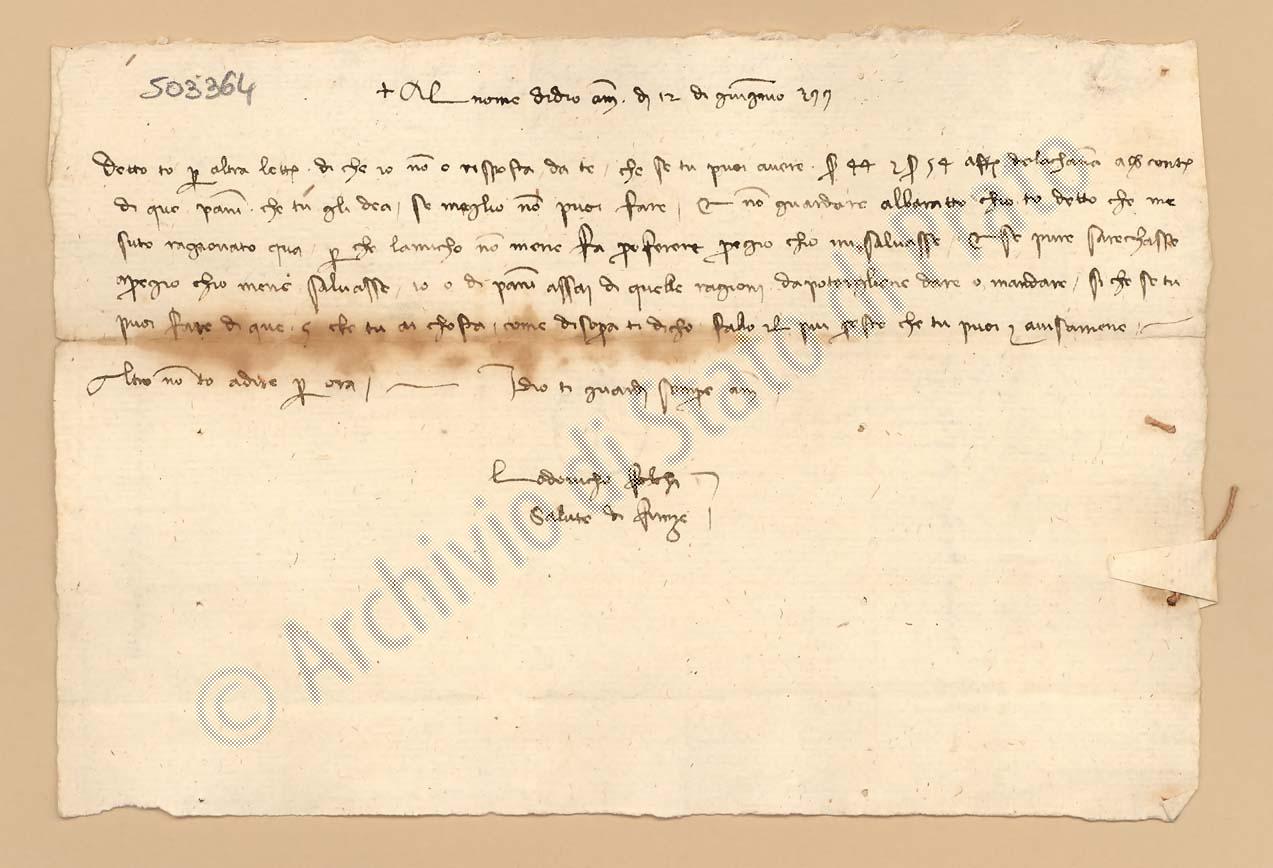 503364
+ Al nome di dio am. di 12 di giugno
Detto to per altra lett. di che io no e risposta da te, che se tu puoi avere 44 54 della chana a contt
di que panni che tu gli dea, se meglio no puoi fare, E no guardare albaratto chio to detto che me
suto ragionato qua, per che lamicho no mene fa proferere pregio cho mi salvasse, E se pure sarechasse
apregio chio mene salvasse, io o di panni assai di quelle ragioni da potergliene dare o mandare, si che se tu
puoi fare di que 5 che tu ai chosta, come di sopra ti dicho fallo il piu presto che tu puoi e avisamene
Altro no to a dire per ora, Idio ti guardi sempre am
Lodovicho
Salute di Firenze
© Archivio di Stato di Prato